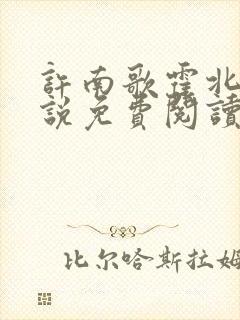 許南歌霍北
說免費閱讀
比尔哈斯拉姆